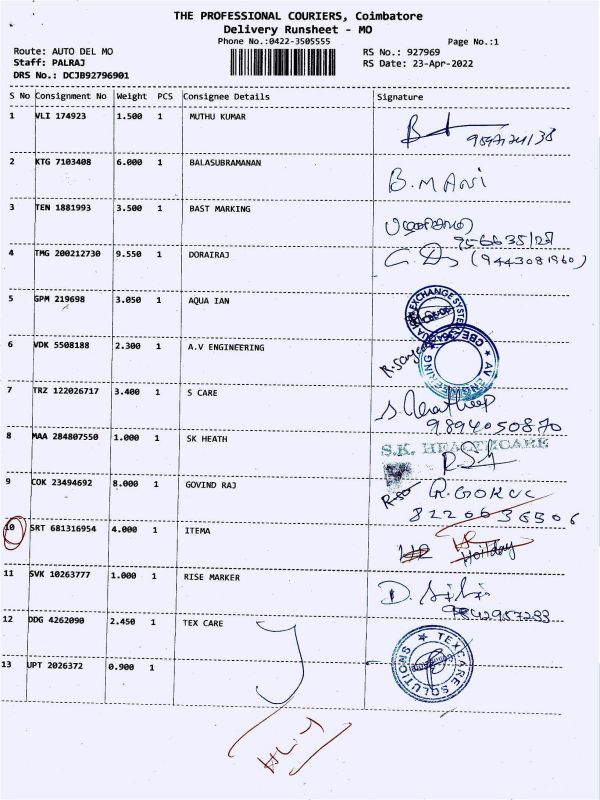 THE PROFESSIONAL COURIERS, Coimbatore
Delivery Runsheet - MO
Phone No.:0422-3505555
Page No.:1
Route: AUTO DEL MO
RS No.: 927969
Staff: PALRAJ
RS Date: 23-Apr-2022
DRS No.: DCJB92796901
S No Consignment No Weight PCS Consignee Details Signature
1 VLI 174923 1.500 1 MUTHU KUMAR
2 KTG 7103408 6.000 1 BALASUBRAMANAN
B.MANI
3 TEN 1881993 3.500 1 BAST MARKING
4 TMG 200212730 9.550 1 DORAIRAJ
(9443081960)
5 GPM 219698 3.050 1 AQUA IAN
EXCHANGE SYSTEM
6 VDK 5508188 2.300 1 A.V ENGINEERING
AV ENGINEERING
CBE
7 TRZ 122026717 3.400 1 S CARE
9894050870
8 MAA 284807550 1.000 1 SK HEATH
S.K. HEALTHCARE
9 COK 23494692 8.000 1 GOVIND RAJ
R.GOKUL
8220636506
10 SRT 681316954 4.000 1 ITEMA
Holiday
11 SVK 10263777 1.000 1 RISE MARKER
9842957283
12 DDG 4262090 2.450 1 TEX CARE
TEXCARE SOLUTIONS
13 UPT 2026372 0.900 1